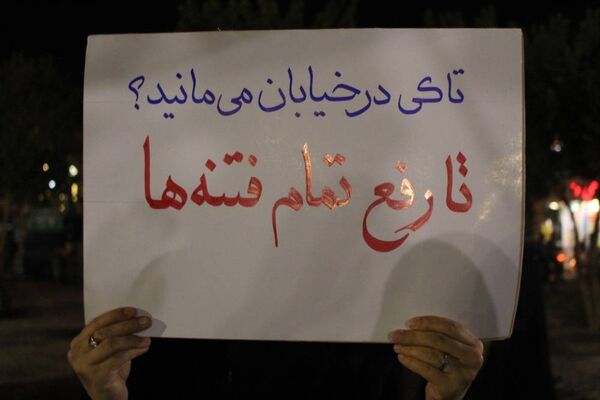 تا کی در خیابان می‌مانید؟
تا رفع تمام فتنه‌ها